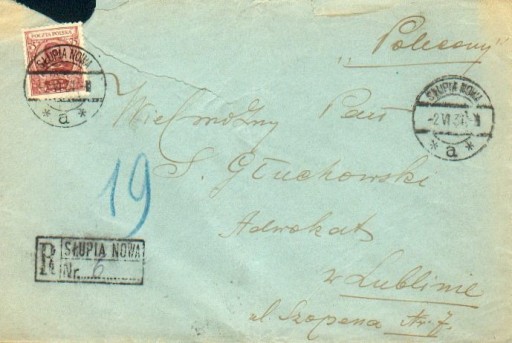 POCZTA POLSKA
SŁUPIA NOWA
a
„Polecony”
SŁUPIA NOWA
-2 VI 31
a
Wielmożny Pan
S. Głuchowski
Adwokat
w Lublinie
ul. Szopena Nr. 7.
19
R
SŁUPIA NOWA
Nr. 6